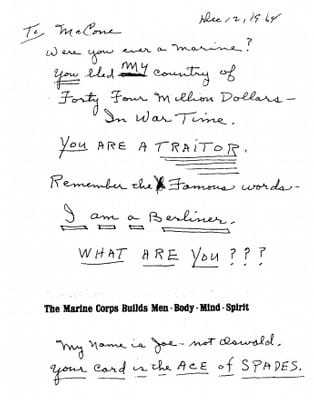 Dec 12, 1964
To McCone
Were you ever a Marine?
You bled my country of
Forty Four Million Dollars—
In War Time.
YOU ARE A TRAITOR.
Remember the Famous words—
I am a Berliner.
WHAT ARE YOU???
The Marine Corps Builds Men · Body · Mind · Spirit
My name is Joe - not Oswald.
Your card is the ACE of SPADES.